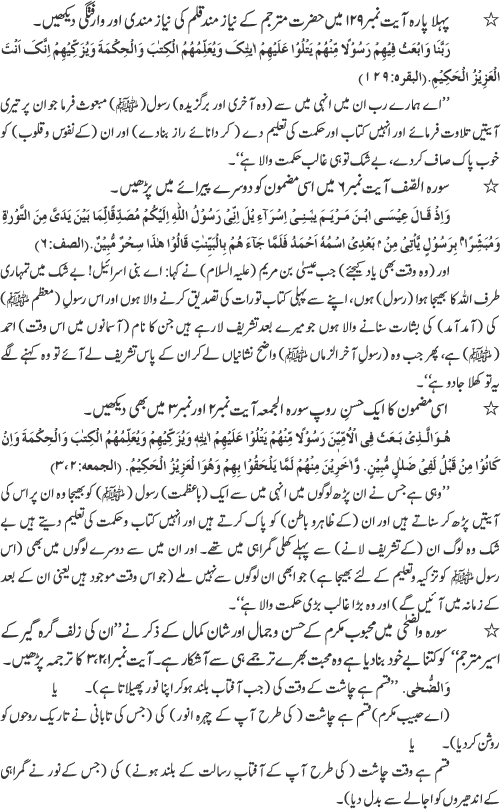 ☆ پہلا پارہ آیت نمبر ۱۲۹ میں حضرت مترجم کے نیاز مند قلم کی نیاز مندی اور وارفتگی دیکھیں۔
رَبَّنَا وَابْعَثْ فِيْهِمْ رَسُوْلًا مِّنْهُمْ يَتْلُوْا عَلَيْهِمْ اٰيٰتِكَ وَيُعَلِّمُهُمُ الْكِتٰبَ وَالْحِكْمَةَ وَيُزَكِّيْهِمْ اِنَّكَ اَنْتَ
الْعَزِيْزُ الْحَكِيْمُ. (البقره: ۱۲۹)
’’اے ہمارے رب ان میں انہی میں سے (وہ آخری اور برگزیدہ) رسول (ﷺ) مبعوث فرما جو ان پر تیری
آیتیں تلاوت فرمائے اور انہیں کتاب اور حکمت کی تعلیم دے (کر دانائے راز بنا دے) اور ان (کے نفوس و قلوب) کو
خوب پاک صاف کر دے، بے شک تو ہی غالب حکمت والا ہے‘‘۔
☆ سورہ الصّف آیت نمبر ۶ میں اسی مضمون کو دوسرے پیرائے میں پڑھیں۔
وَاِذْ قَالَ عِيْسَى ابْنُ مَرْيَمَ يٰبَنِىْ اِسْرَآءِيْلَ اِنِّىْ رَسُوْلُ اللّٰهِ اِلَيْكُمْ مُّصَدِّقًا لِّمَا بَيْنَ يَدَىَّ مِنَ التَّوْرٰةِ
وَمُبَشِّرًا م بِرَسُوْلٍ يَّاْتِىْ مِنْ م بَعْدِى اسْمُهٗ اَحْمَدُ فَلَمَّا جَآءَ هُمْ بِالْبَيِّنٰتِ قَالُوْا هٰذَا سِحْرٌ مُّبِيْنٌ. (الصف: ۶)
اور (وہ وقت بھی یاد کیجئے) جب عیسیٰ بن مریم (علیہ السلام) نے کہا: اے بنی اسرائیل! بے شک میں تمہاری
طرف اللہ کا بھیجا ہوا (رسول) ہوں، اپنے سے پہلی کتاب تورات کی تصدیق کرنے والا ہوں اور اس رسولِ (معظم ﷺ)
کی (آمد آمد) کی بشارت سنانے والا ہوں جو میرے بعد تشریف لا رہے ہیں جن کا نام (آسمانوں میں اس وقت) احمد
(ﷺ) ہے، پھر جب وہ (رسولِ آخر الزماں ﷺ) واضح نشانیاں لے کر ان کے پاس تشریف لے آئے تو وہ کہنے لگے
یہ تو کھلا جادو ہے‘‘۔
☆ اسی مضمون کا ایک حسنِ روپ سورہ الجمعہ آیت نمبر ۲ اور نمبر ۳ میں بھی دیکھیں۔
هُوَ الَّذِىْ بَعَثَ فِى الْاُمِّيّٖنَ رَسُوْلًا مِّنْهُمْ يَتْلُوْا عَلَيْهِمْ اٰيٰتِهٖ وَيُزَكِّيْهِمْ وَيُعَلِّمُهُمُ الْكِتٰبَ وَالْحِكْمَةَ وَاِنْ
كَانُوْا مِنْ قَبْلُ لَفِىْ ضَلٰلٍ مُّبِيْنٍ. وَّاٰخَرِيْنَ مِنْهُمْ لَمَّا يَلْحَقُوْا بِهِمْ وَهُوَ الْعَزِيْزُ الْحَكِيْمُ. (الجمعه: ۲،۳)
’’وہی ہے جس نے ان پڑھ لوگوں میں انہی میں سے ایک (باعظمت) رسول (ﷺ) کو بھیجا وہ ان پر اس کی
آیتیں پڑھ کر سناتے ہیں اور ان (کے ظاہر و باطن) کو پاک کرتے ہیں اور انہیں کتاب و حکمت کی تعلیم دیتے ہیں بے
شک وہ لوگ ان (کے تشریف لانے) سے پہلے کھلی گمراہی میں تھے۔ اور ان میں سے دوسرے لوگوں میں بھی (اس
رسول ﷺ کو تزکیہ و تعلیم کے لئے بھیجا ہے) جو ابھی ان لوگوں سے نہیں ملے (جو اس وقت موجود ہیں یعنی ان کے بعد
کے زمانہ میں آئیں گے) اور وہ بڑا غالب بڑی حکمت والا ہے‘‘۔
☆ سورہ والضّحیٰ میں محبوب مکرم کے حسن و جمال اور شان کمال کے ذکر نے ’’ان کی زلف گرہ گیر کے
اسیر مترجم‘‘ کو کتنا بے خود بنا دیا ہے وہ محبت بھرے ترجمے ہی سے آشکار ہے۔ آیت نمبر ۱،۲،۳ کا ترجمہ پڑھیں۔
وَالضُّحٰى. ’’قسم ہے چاشت کے وقت کی (جب آفتاب بلند ہو کر اپنا نور پھیلاتا ہے)۔ یا
(اے حبیب مکرم) قسم ہے چاشت (کی طرح آپ کے چہرہ انور) کی (جس کی تابانی نے تاریک روحوں کو
روشن کر دیا)۔ یا
قسم ہے وقت چاشت (کی طرح آپ کے آفتابِ رسالت کے بلند ہونے) کی (جس کے نور نے گمراہی
کے اندھیروں کو اجالے سے بدل دیا)۔